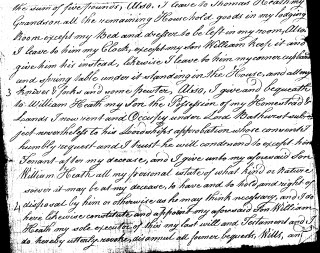 the sum of five pounds, Also. I leave to Thomas Heath my
Grandson all the remaining Household goods in my lodging
Room except my Bed and dresser to be left in my room, Also
I leave to him my Clock, except my Son William keep it and
give him his instead, Likewise I leave to him my corner cupboard
and spring table under it standing in the House, and all my
3 Knives & forks and some pewter, Also, I give and bequeath
to William Heath my Son the Possession of my Homestead &
Lands I now rent and Occupy under Lord Bathurst sub-
ject nevertheless to his Lordships approbation whose consent I
humbly request and I trust he will condescend to except him
Tenant after my decease, and I give unto my aforesaid Son
William Heath all my personal estate of what kind or nature
soever it may be at my decease, to have and to hold and right of
4 disposal by him or otherwise as he may think necessary, and I do
here likewise constitute and appoint my aforesaid Son William
Heath my sole executor of this my last will and Testament and I
do hereby utterly revoke, disannul all former bequests, Wills, and